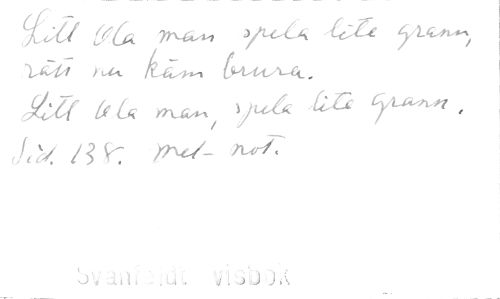 Litl Ola man spela lite grann,
rätt nu käm brura.
Litl Ola man, spela lite grann.
Sid. 138. Mel- not.
Svanfeldt visbok